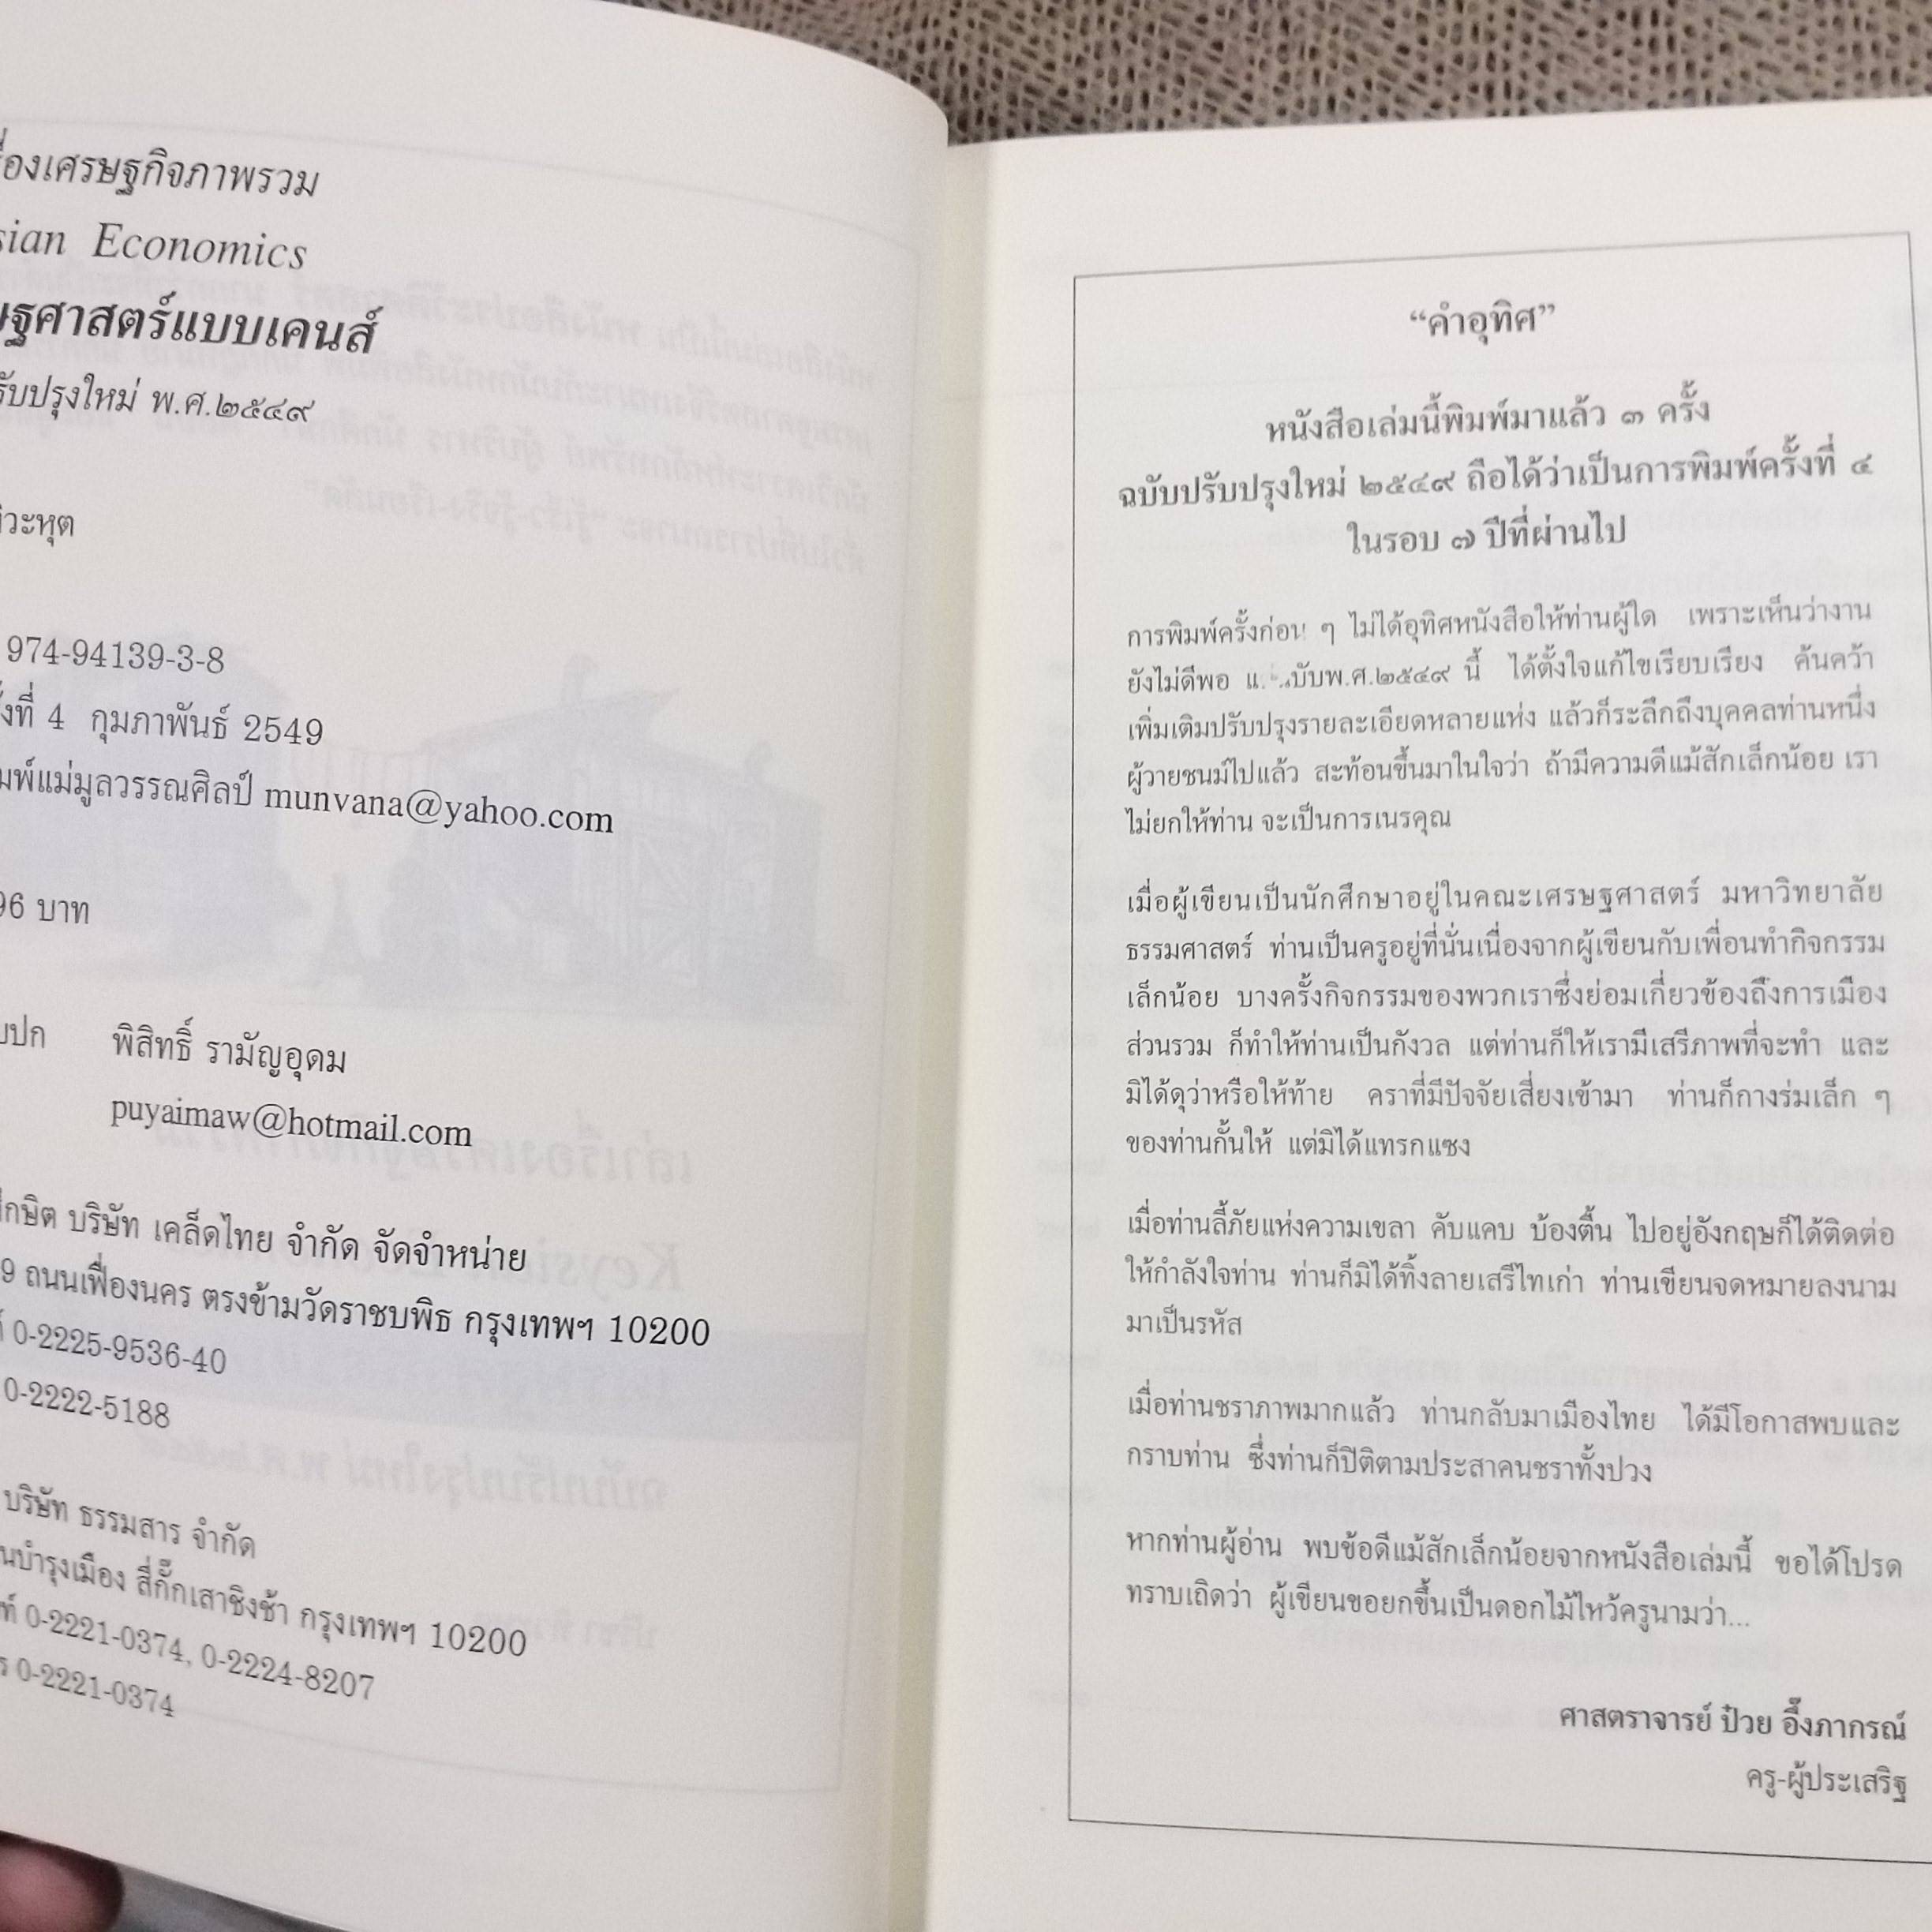 เศรษฐกิจภาพรวม
Economics
แบบเคนส์
ปรับปรุงใหม่ พ.ศ.๒๕๔๙
974-94139-3-8
ที่ 4 กุมภาพันธ์ 2549
แม่มูลวรรณศิลป์ munvana@yahoo.com
96 บาท
ปก พิสิทธิ์ รามัญอุดม
puyaimaw@hotmail.com
บริษัท เคล็ดไทย จำกัด จัดจำหน่าย
9 ถนนเฟื่องนคร ตรงข้ามวัดราชบพิธ กรุงเทพฯ 10200
0-2225-9536-40
0-2222-5188
บริษัท ธรรมสาร จำกัด
บำรุงเมือง สี่กั๊กเสาชิงช้า กรุงเทพฯ 10200
0-2221-0374, 0-2224-8207
0-2221-0374
“คำอุทิศ”
หนังสือเล่มนี้พิมพ์มาแล้ว ๓ ครั้ง
ฉบับปรับปรุงใหม่ ๒๕๔๙ ถือได้ว่าเป็นการพิมพ์ครั้งที่ ๔
ในรอบ ๗ ปีที่ผ่านไป
การพิมพ์ครั้งก่อน ๆ ไม่ได้อุทิศหนังสือให้ท่านผู้ใด เพราะเห็นว่างาน
ยังไม่ดีพอ พ.ศ.๒๕๔๙ นี้ ได้ตั้งใจแก้ไขเรียบเรียง ค้นคว้า
เพิ่มเติมปรับปรุงรายละเอียดหลายแห่ง แล้วก็ระลึกถึงบุคคลท่านหนึ่ง
ผู้วายชนม์ไปแล้ว สะท้อนขึ้นมาในใจว่า ถ้ามีความดีแม้สักเล็กน้อย เรา
ไม่ยกให้ท่าน จะเป็นการเนรคุณ
เมื่อผู้เขียนเป็นนักศึกษาอยู่ในคณะเศรษฐศาสตร์ มหาวิทยาลัย
ธรรมศาสตร์ ท่านเป็นครูอยู่ที่นั่นเนื่องจากผู้เขียนกับเพื่อนทำกิจกรรม
เล็กน้อย บางครั้งกิจกรรมของพวกเราซึ่งย่อมเกี่ยวข้องถึงการเมือง
ส่วนรวม ก็ทำให้ท่านเป็นกังวล แต่ท่านก็ให้เรามีเสรีภาพที่จะทำ และ
มิได้ดุว่าหรือให้ท้าย คราที่มีปัจจัยเสี่ยงเข้ามา ท่านก็กางร่มเล็ก ๆ
ของท่านกั้นให้ แต่มิได้แทรกแซง
เมื่อท่านลี้ภัยแห่งความเขลา คับแคบ บ้องตื้น ไปอยู่อังกฤษก็ได้ติดต่อ
ให้กำลังใจท่าน ท่านก็มิได้ทิ้งลายเสรีไทเก่า ท่านเขียนจดหมายลงนาม
มาเป็นรหัส
เมื่อท่านชราภาพมากแล้ว ท่านกลับมาเมืองไทย ได้มีโอกาสพบและ
กราบท่าน ซึ่งท่านก็ปิติตามประสาคนชราทั้งปวง
หากท่านผู้อ่าน พบข้อดีแม้สักเล็กน้อยจากหนังสือเล่มนี้ ขอได้โปรด
ทราบเถิดว่า ผู้เขียนขอยกขึ้นเป็นดอกไม้ไหว้ครูนามว่า...
ศาสตราจารย์ ป๋วย อึ๊งภากรณ์
ครู-ผู้ประเสริฐ